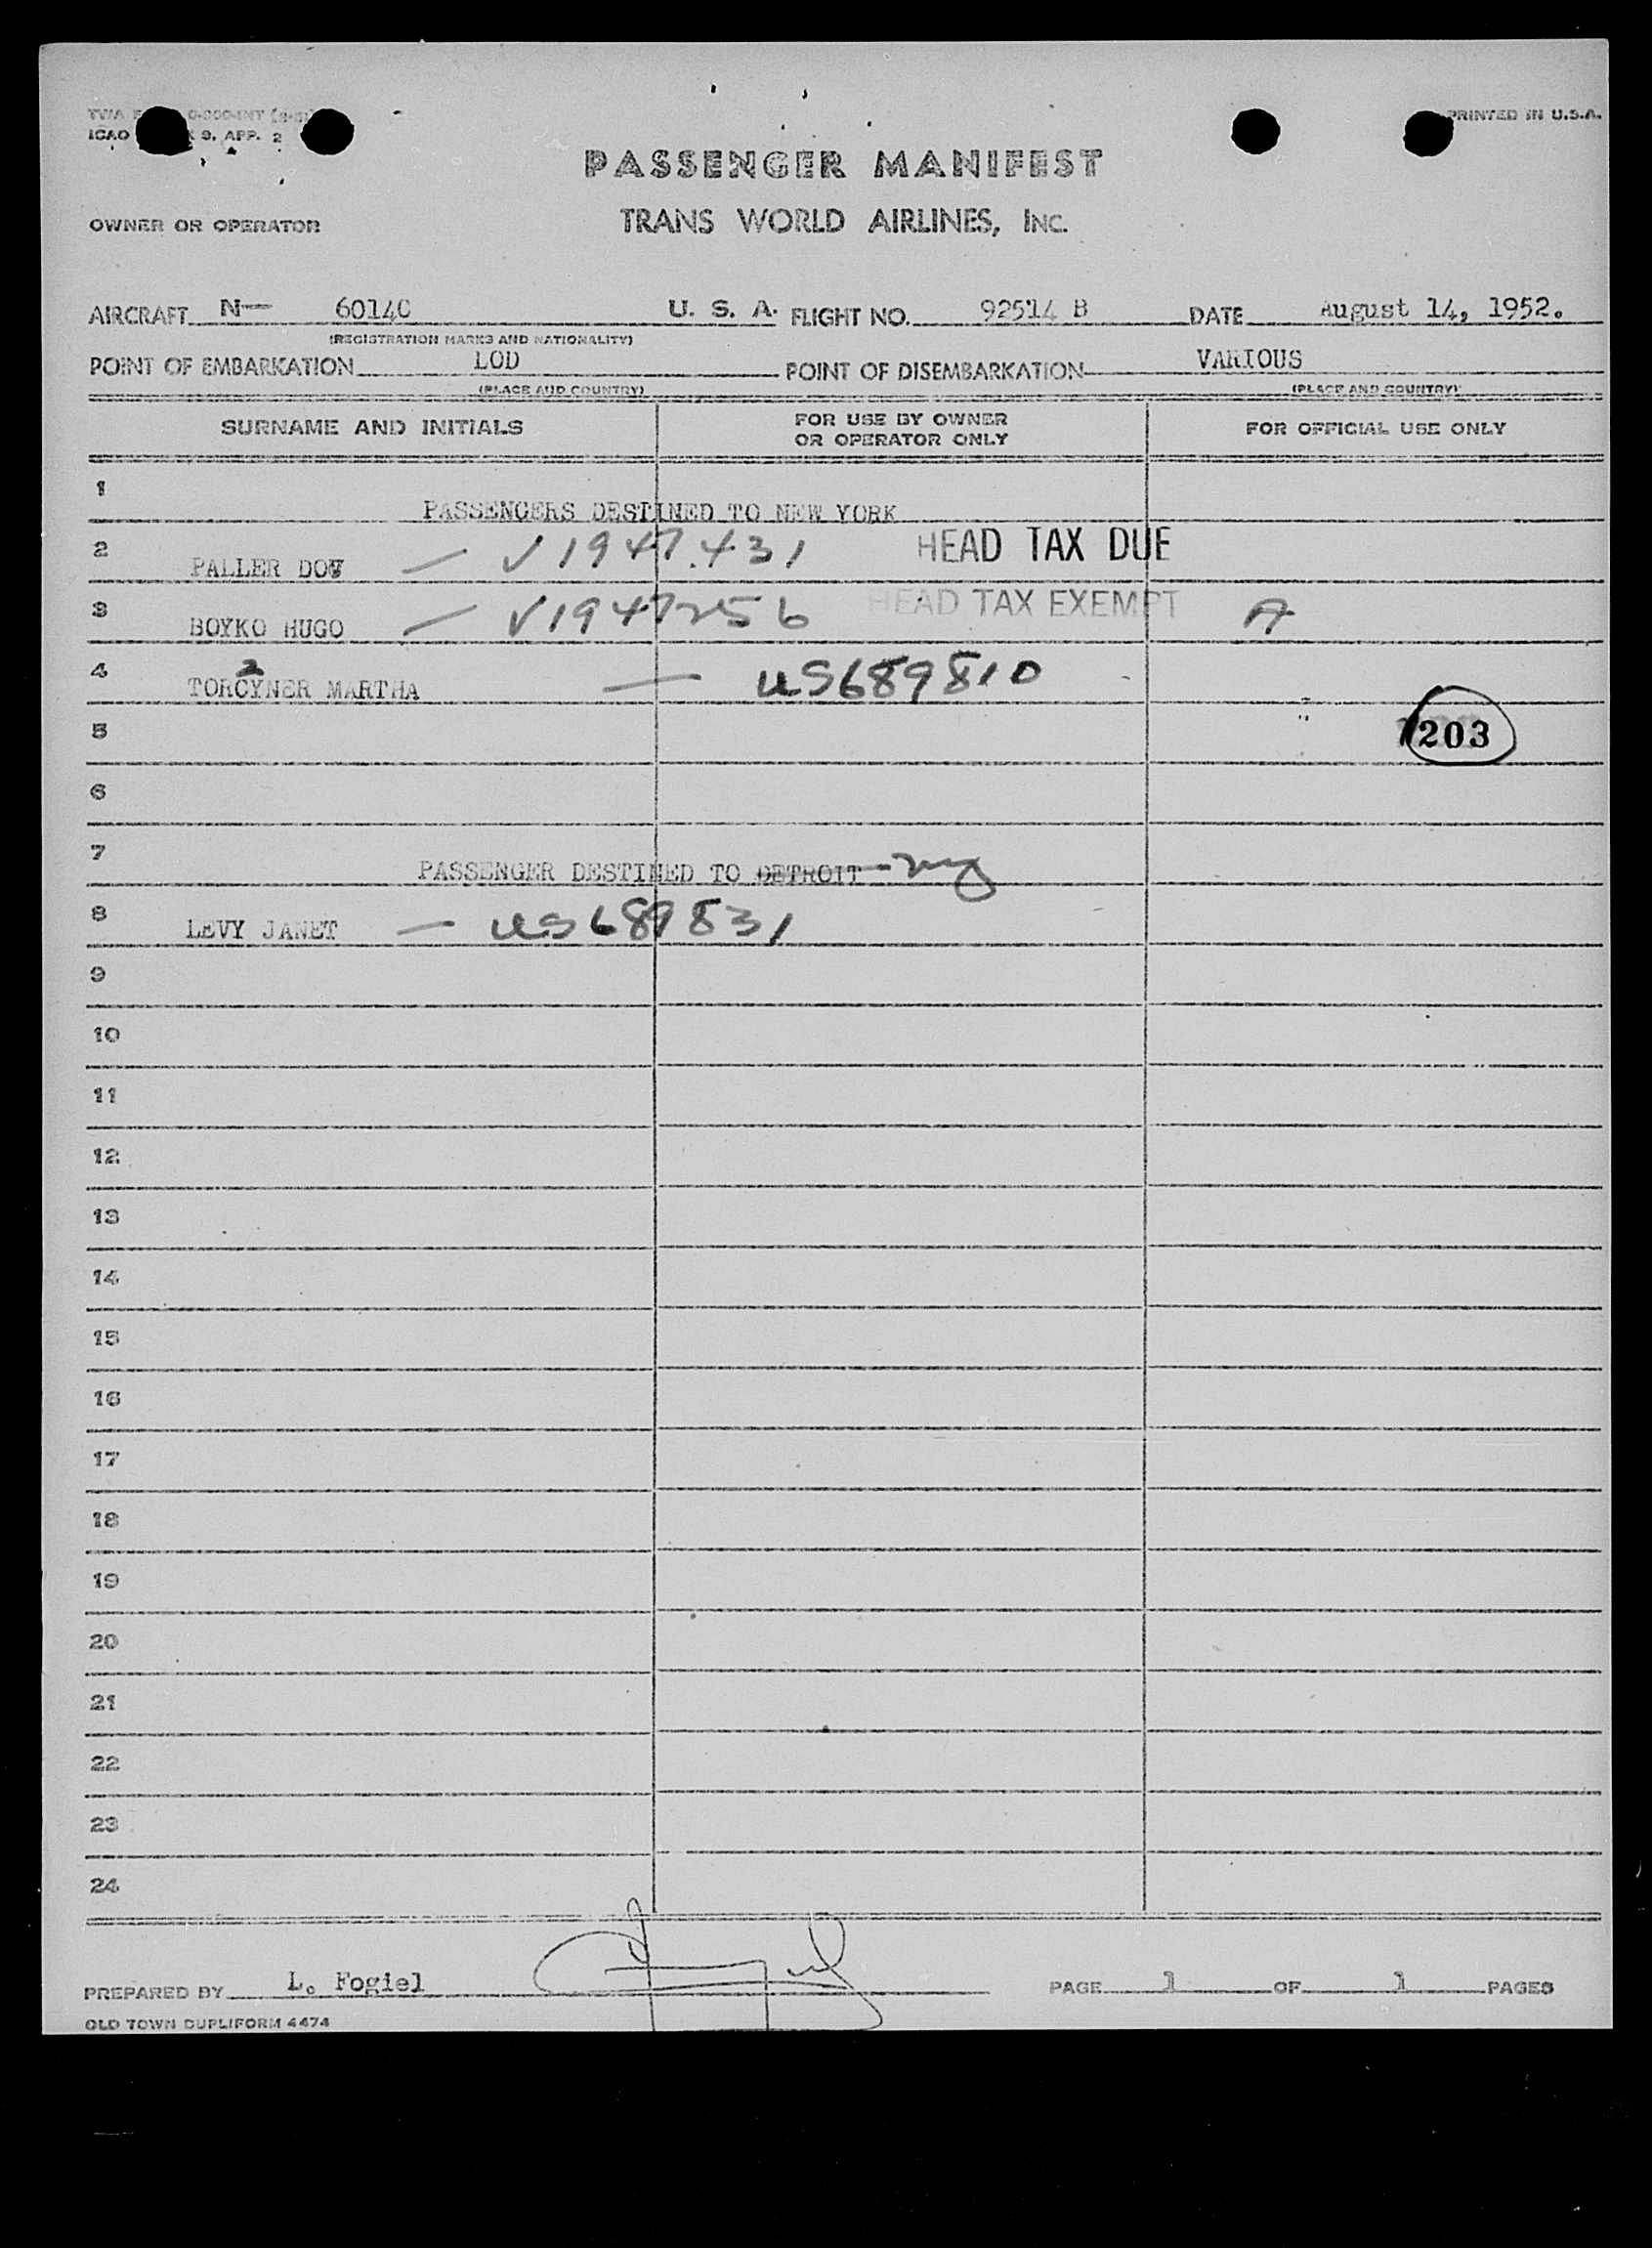 ICAO 9, APP. 2
PRINTED IN U.S.A.
PASSENGER MANIFEST
OWNER OR OPERATOR TRANS WORLD AIRLINES, INC.
AIRCRAFT N— 6014C U. S. A. FLIGHT NO. 92514 B DATE August 14, 1952.
(REGISTRATION MARKS AND NATIONALITY)
POINT OF EMBARKATION LOD POINT OF DISEMBARKATION VARIOUS
(PLACE AND COUNTRY) (PLACE AND COUNTRY)
SURNAME AND INITIALS FOR USE BY OWNER OR OPERATOR ONLY FOR OFFICIAL USE ONLY
1 PASSENGERS DESTINED TO NEW YORK
2 PALLER DOV — V1947431 HEAD TAX DUE
3 BOYKO HUGO — V1947256 HEAD TAX EXEMPT A
4 TORCYNER MARTHA — US689810
2
5 203
6
7 PASSENGER DESTINED TO DETROIT - ny
8 LEVY JANET — US689831
9
10
11
12
13
14
15
16
17
18
19
20
21
22
23
24
PREPARED BY L. Fogiel PAGE 1 OF 1 PAGES
OLD TOWN DUPLIFORM 4474